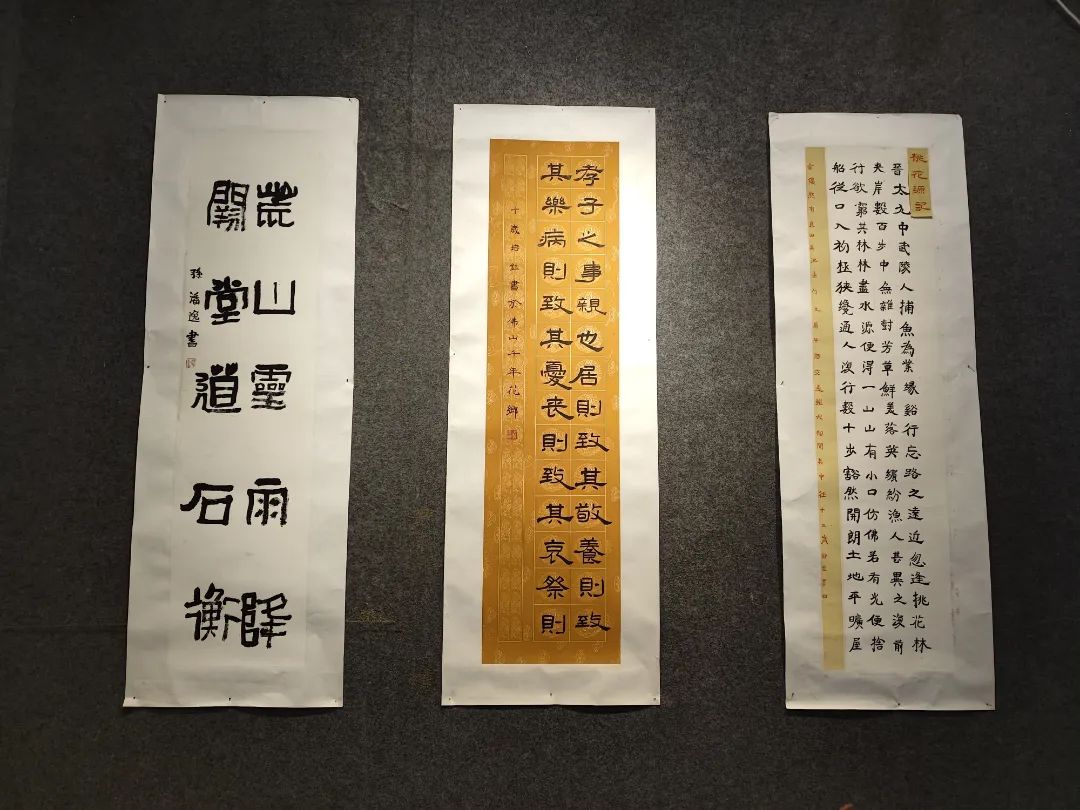 荒山靈雨降
堂道石衡
孫逸書
孝子之事親也居則致其敬養則致
其樂病則致其憂喪則致其哀祭則
十歲書於佛山千年花鄉
桃花源記
晉太元中武陵人捕魚為業緣谿行忘路之遠近忽逢桃花林
夾岸數百步中無雜對芳草鮮美落英繽紛漁人甚異之復前
行欲窮其林林盡水源便得一山山有小口仿佛若有光便捨
船從口入初極狹纔通人復行數十步豁然開朗土地平曠屋
舍儼然有良田美池桑竹之屬阡陌交通雞犬相聞其中往十二歲書